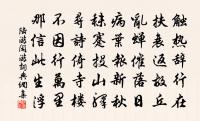 觸熱辭行在
扶衰返故丘
亂蟬催落日
病葉報新秋
秣蹇投山驛
尋詩倚寺樓
不因行萬里
那信此生浮
陸游閒游詞典網書